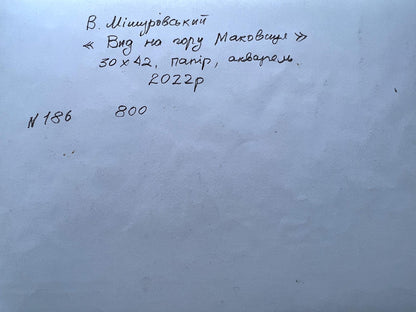 В. Мішуровський
« Вид на гору Маковиця »
30 x 42, папір, акварель.
2022р
N 186 800